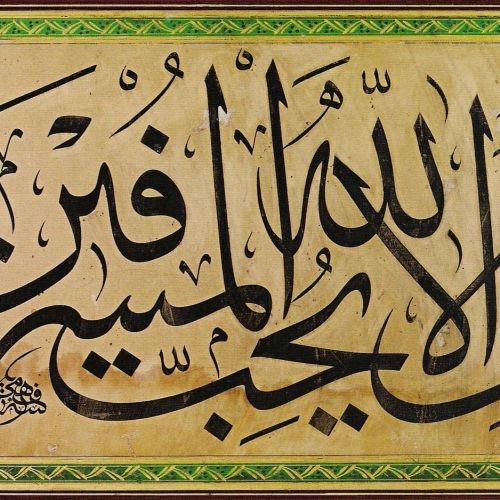 الله لا يحب المسرفين